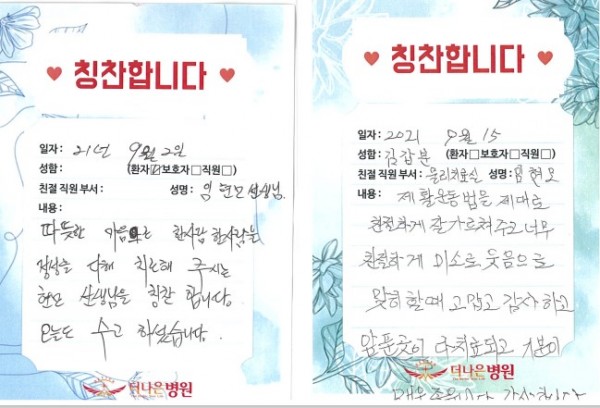 칭찬합니다
일자: 21년 9월 2일
성함: (환자☑보호자□직원□)
친절 직원 부서: 성명: 임현모 선생님
내용:
따뜻한 마음으로 한사람 한사람을
정성을 다해 치료해 주시는
현모 선생님을 칭찬 합니다.
오늘도 수고 하셨습니다.
더나은병원
칭찬합니다
일자: 2021 9월 15
성함: 김갑분 (환자□보호자□직원□)
친절 직원 부서: 물리치료실 성명: 임현모
내용: 재활운동법을 제대로
친절하게 잘 가르쳐 주고 너무
친절하게 미소로 웃음으로
할때 고맙고 감사하고
아픈곳이 다 치료되고 기분이
매우
더나은병원